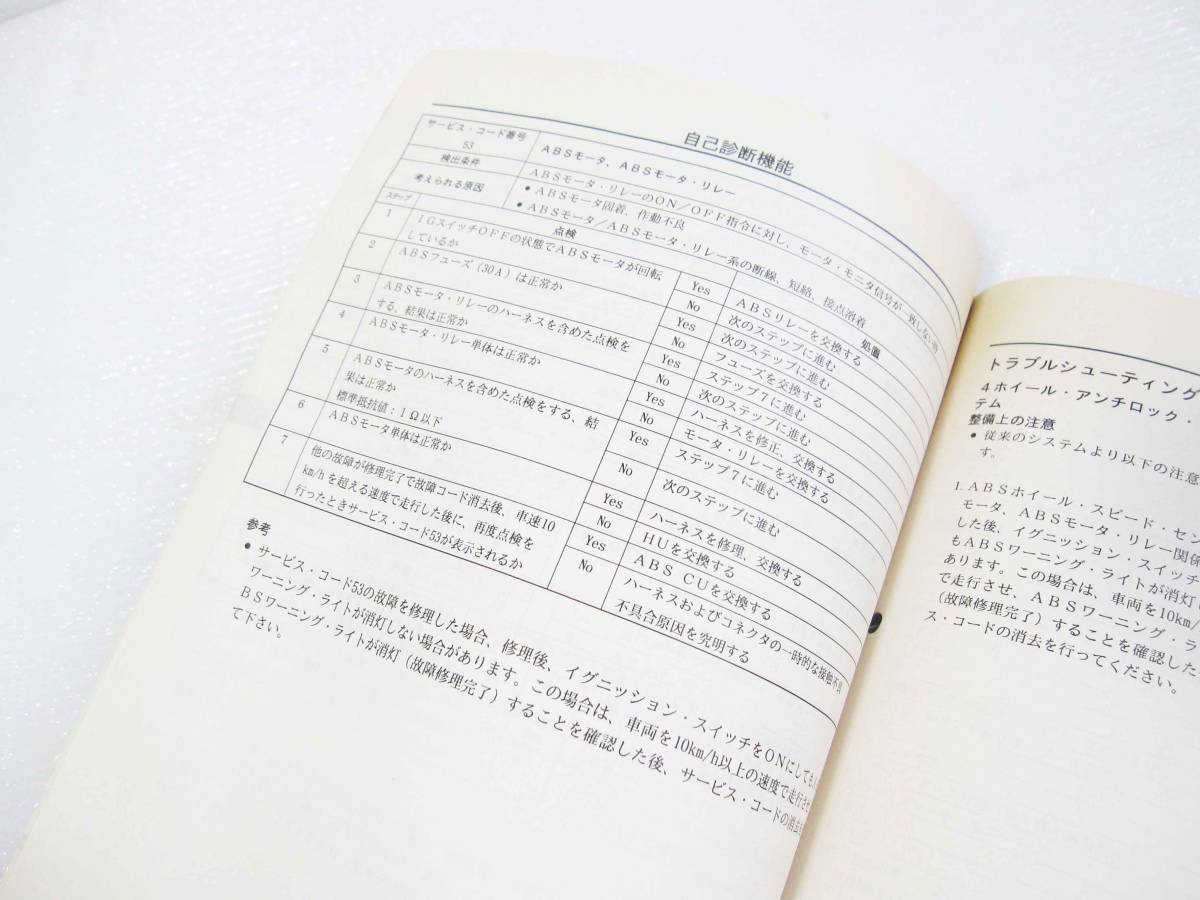 自己診断機能
サービス・コード番号
53
ABSモータ、ABSモータ・リレー
検出条件
ABSモータ・リレーのON/OFF指令に対し、モータ・モニタ信号が一致しない時
考えられる原因
● ABSモータ固着、作動不良
● ABSモータ/ABSモータ・リレー系の断線、短絡、接点溶着
ステップ
点検
処置
1
IGスイッチOFFの状態でABSモータが回転
しているか
Yes
ABSリレーを交換する
No
次のステップに進む
2
ABSフューズ(30A)は正常か
Yes
次のステップに進む
No
フューズを交換する
3
ABSモータ・リレーのハーネスを含めた点検を
する、結果は正常か
Yes
ステップ7に進む
No
次のステップに進む
4
ABSモータ・リレー単体は正常か
Yes
ハーネスを修正、交換する
No
モータ・リレーを交換する
5
ABSモータのハーネスを含めた点検をする、結
果は正常か
標準抵抗値:1Ω以下
Yes
ステップ7に進む
No
次のステップに進む
6
ABSモータ単体は正常か
Yes
ハーネスを修理、交換する
No
HUを交換する
7
他の故障が修理完了で故障コード消去後、車速10
km/hを超える速度で走行した後に、再度点検を
行ったときサービス・コード53が表示されるか
Yes
ABS CUを交換する
No
ハーネスおよびコネクタの一時的な接触不良
不具合原因を究明する
参考
● サービス・コード53の故障を修理した場合、修理後、イグニッション・スイッチをONにしても
ワーニング・ライトが消灯しない場合があります。この場合は、車両を10km/h以上の速度で走行させ
BSワーニング・ライトが消灯(故障修理完了)することを確認した後、サービス・コードの消去
て下さい。
トラブルシューティング
4ホイール・アンチロック・
テム
整備上の注意
● 従来のシステムより以下の注意
す。
1. ABSホイール・スピード・セン
モータ、ABSモータ・リレー関係
した後、イグニッション・スイッチ
もABSワーニング・ライトが消灯し
あります。この場合は、車両を10km/
で走行させ、ABSワーニング・ラ
(故障修理完了)することを確認した
ス・コードの消去を行ってください。